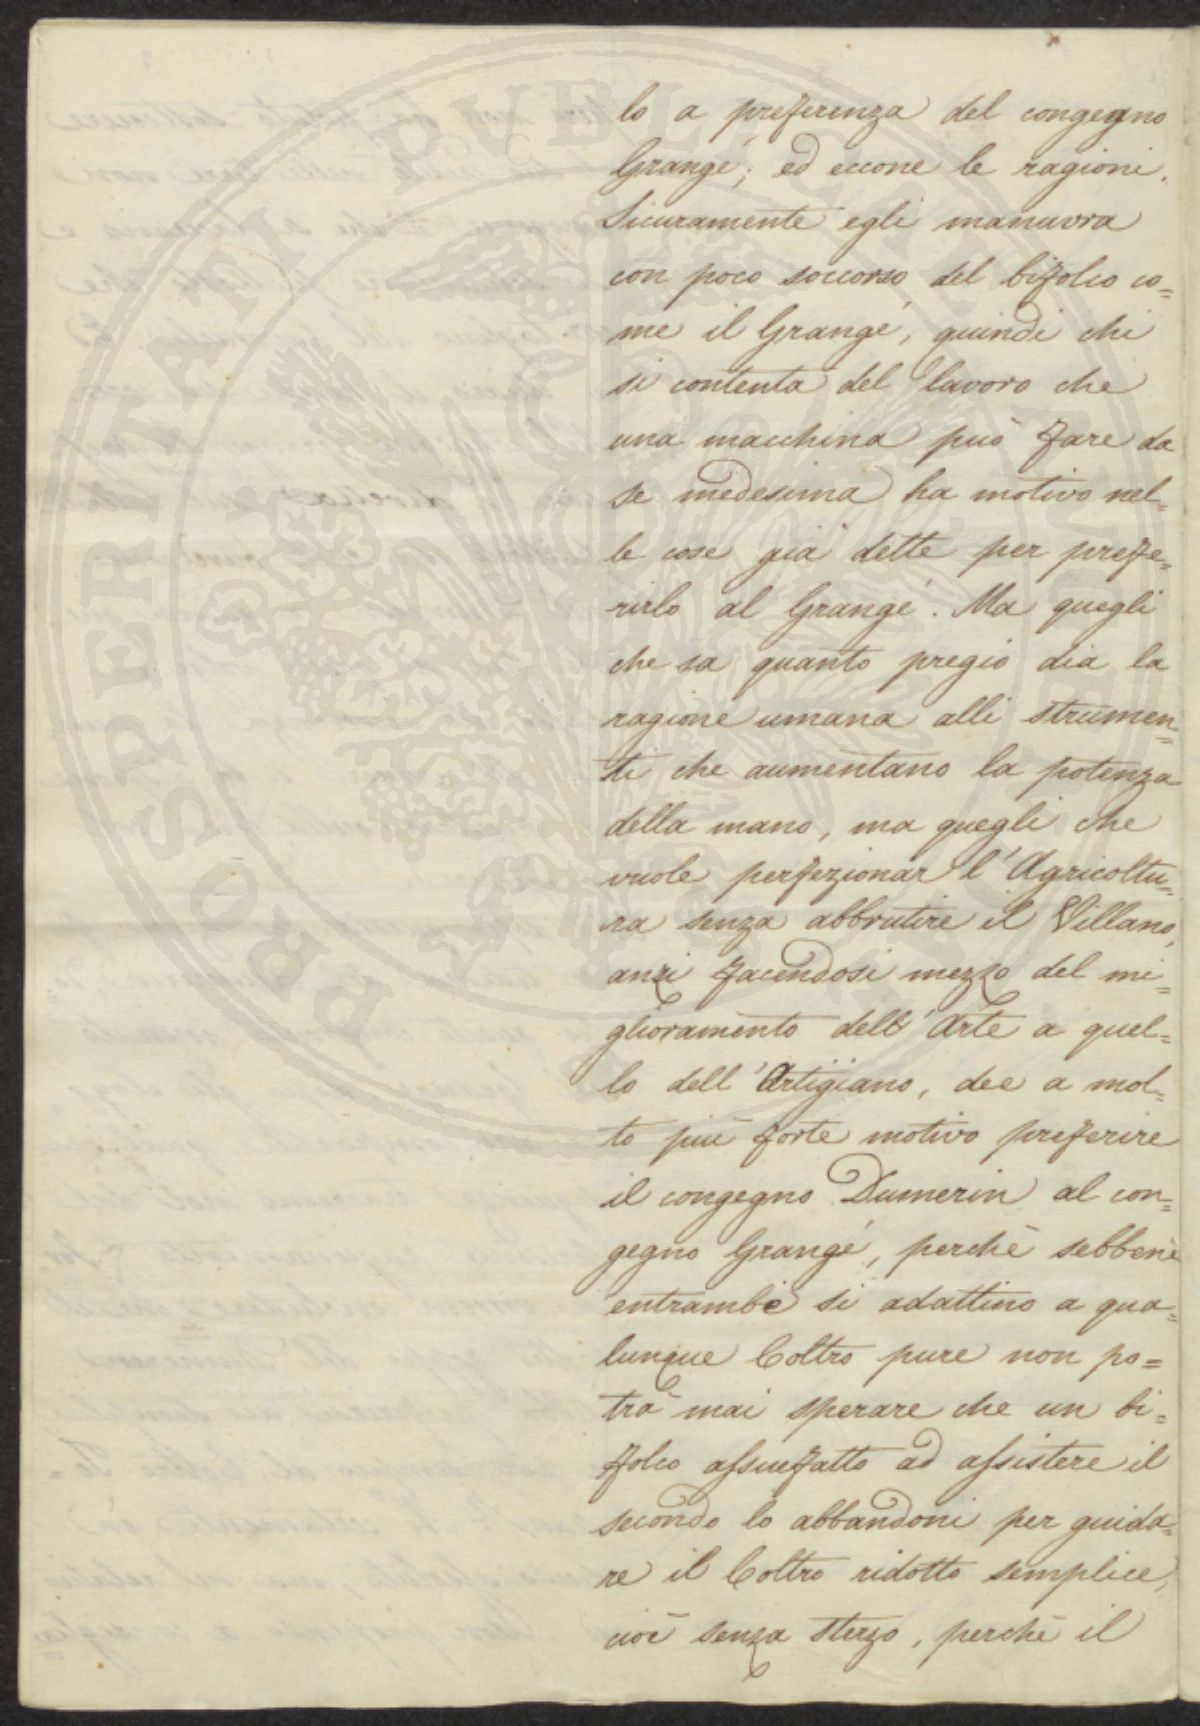 lo a preferenza del congegno
Grangé; ed eccone le ragioni.
Sicuramente egli manuvra
con poco soccorso del bifolco co=
me il Grangé, quindi chi
si contenta del lavoro che
una macchina può fare da
se medesima ha motivo nel=
le cose già dette per prefe=
rirlo al Grangé. Ma quegli
che sa quanto pregio dia la
ragione umana alli strumen=
ti che aumentano la potenza
della mano, ma quegli che
vuole perfezionar l'Agricoltu=
ra senza abbrutire il Villano,
anzi facendosi mezzo del mi=
glioramento dell'Arte a quel=
lo dell'Artigiano, dee a mol=
to più forte motivo preferire
il congegno Dumerin al con=
gegno Grangé, perchè sebbene
entrambe si adattino a qua=
lunque Coltro pure non po=
trà mai sperare che un bi=
folco assuefatto ad assistere il
secondo lo abbandoni per guida=
re il Coltro ridotto semplice,
cioè senza sterzo, perchè il
PROSPERITATI PVBLICAE